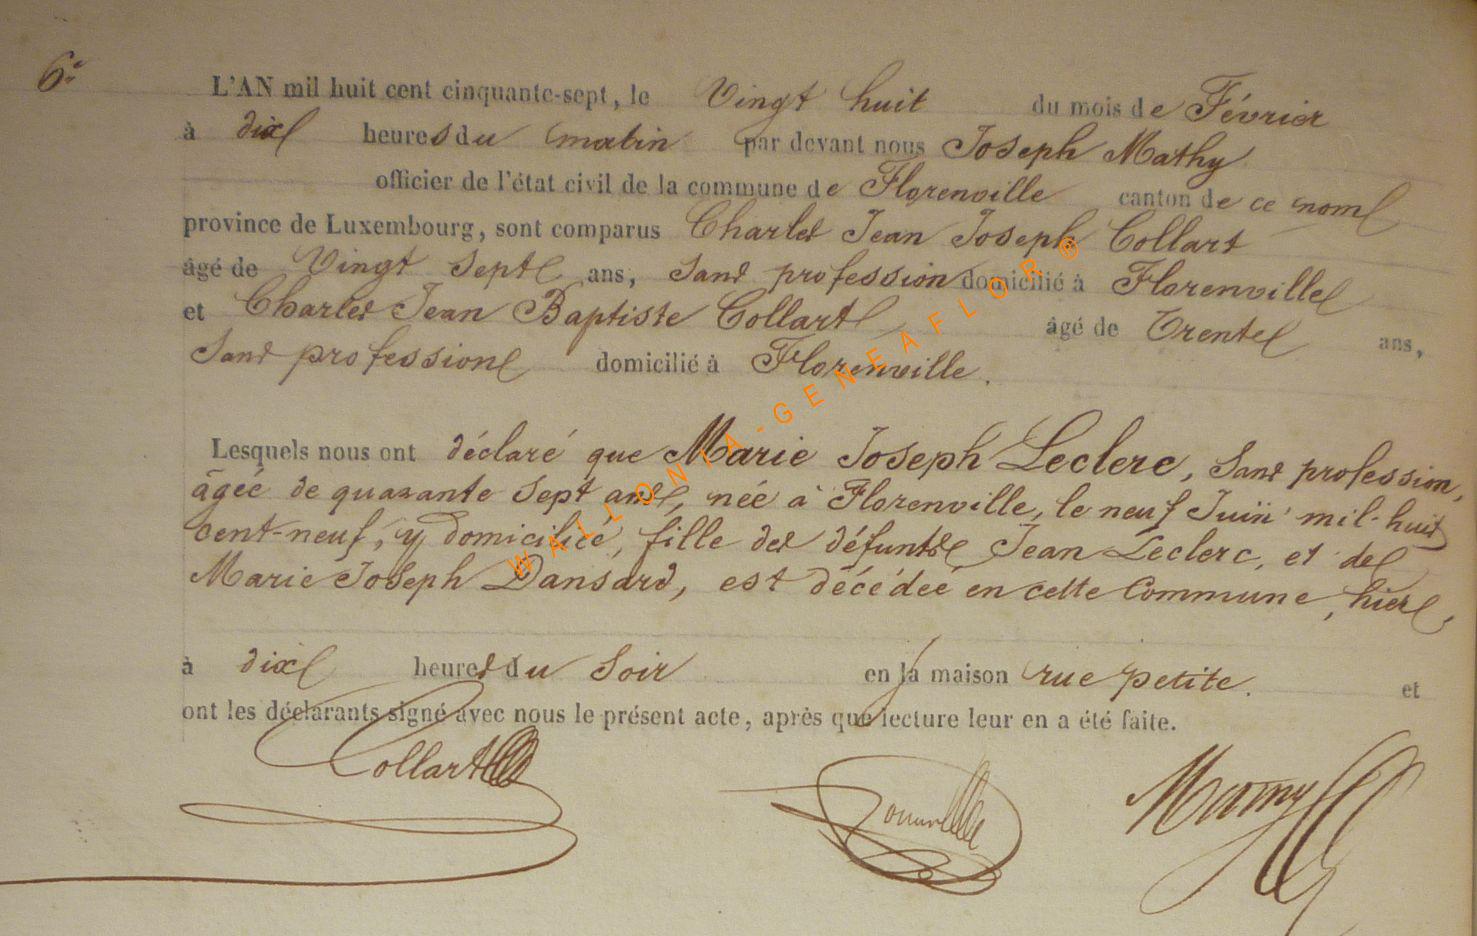 6e
L'AN mil huit cent cinquante-sept, le Vingt huit du mois de Février
à dix heures du matin par devant nous Joseph Mathy
officier de l'état civil de la commune de Florenville canton de ce nom
province de Luxembourg, sont comparus Charles Jean Joseph Collart
âgé de Vingt Sept ans, Sans profession domicilié à Florenville
et Charles Jean Baptiste Collart âgé de Trente ans,
Sans profession domicilié à Florenville.
Lesquels nous ont déclaré que Marie Joseph Leclerc, Sans profession,
âgée de quarante Sept ans, née à Florenville, le neuf Juin mil-huit
cent-neuf, y domiciliée, fille des défunts Jean Leclerc, et de
Marie Joseph Dansard, est décédée en cette Commune, hier,
à dix heures du Soir en la maison rue petite. et
ont les déclarants signé avec nous le présent acte, après que lecture leur en a été faite.
Collart
WALLONIA-GENEAFLOR®